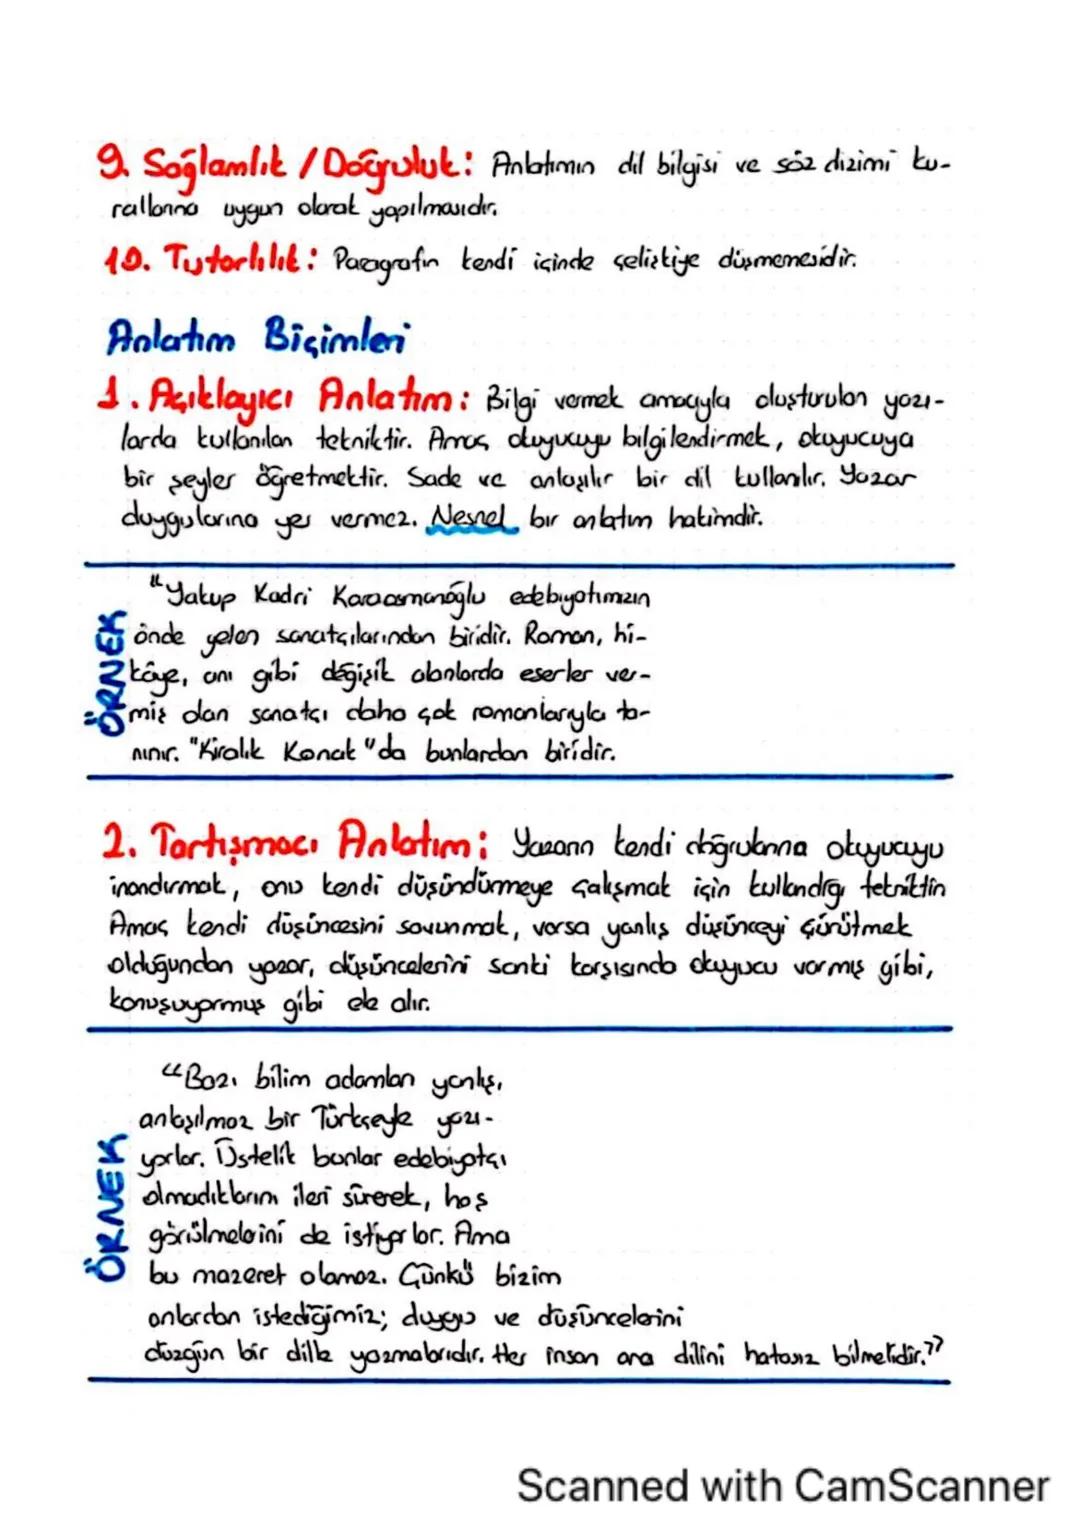 9. Sağlamlık / Doğruluk: Anlatımın dil bilgisi ve söz dizimi ku-
rallarına uygun olarak yapılmasıdır.
10. Tutarlılık: Paragrafın kendi içinde çelişkiye düşmemesidir.
Anlatım Biçimleri
1. Açıklayıcı Anlatım: Bilgi vermek amacıyla oluşturulan yazı-
larda kullanılan tekniktir. Amaç okuyucuyu bilgilendirmek, okuyucuya
bir şeyler öğretmektir. Sade ve anlaşılır bir dil kullanılır. Yazar
duygularına yer vermez. Nesnel bir anlatım hakimdir.
ÖRNEK
"Yakup Kadri Karaosmanoğlu edebiyatımızın
önde gelen sanatçılarından biridir. Roman, hi-
kâye, anı gibi değişik alanlarda eserler ver-
miş olan sanatçı daha çok romanlarıyla ta-
nınır. "Kiralık Konak"da bunlardan biridir.
2. Tartışmacı Anlatım: Yazarın kendi doğrularına okuyucuyu
inandırmak, onu kendi düşündürmeye çalışmak için kullandığı tekniktir.
Amaç kendi düşüncesini savunmak, varsa yanlış düşünceyi çürütmek
olduğundan yazar, düşüncelerini sanki karşısında okuyucu varmış gibi,
konuşuyormuş gibi ele alır.
ÖRNEK
"Bazı bilim adamları yanlış,
anlaşılmaz bir Türkçeyle yazı-
yorlar. Üstelik bunlar edebiyatçı
olmadıklarını ileri sürerek, hoş
görülmelerini de istiyorlar. Ama
bu mazeret olamaz. Çünkü bizim
onlardan istediğimiz; duygu ve düşüncelerini
düzgün bir dille yazmalarıdır. Her insan ana dilini hatasız bilmelidir."
Scanned with CamScanner